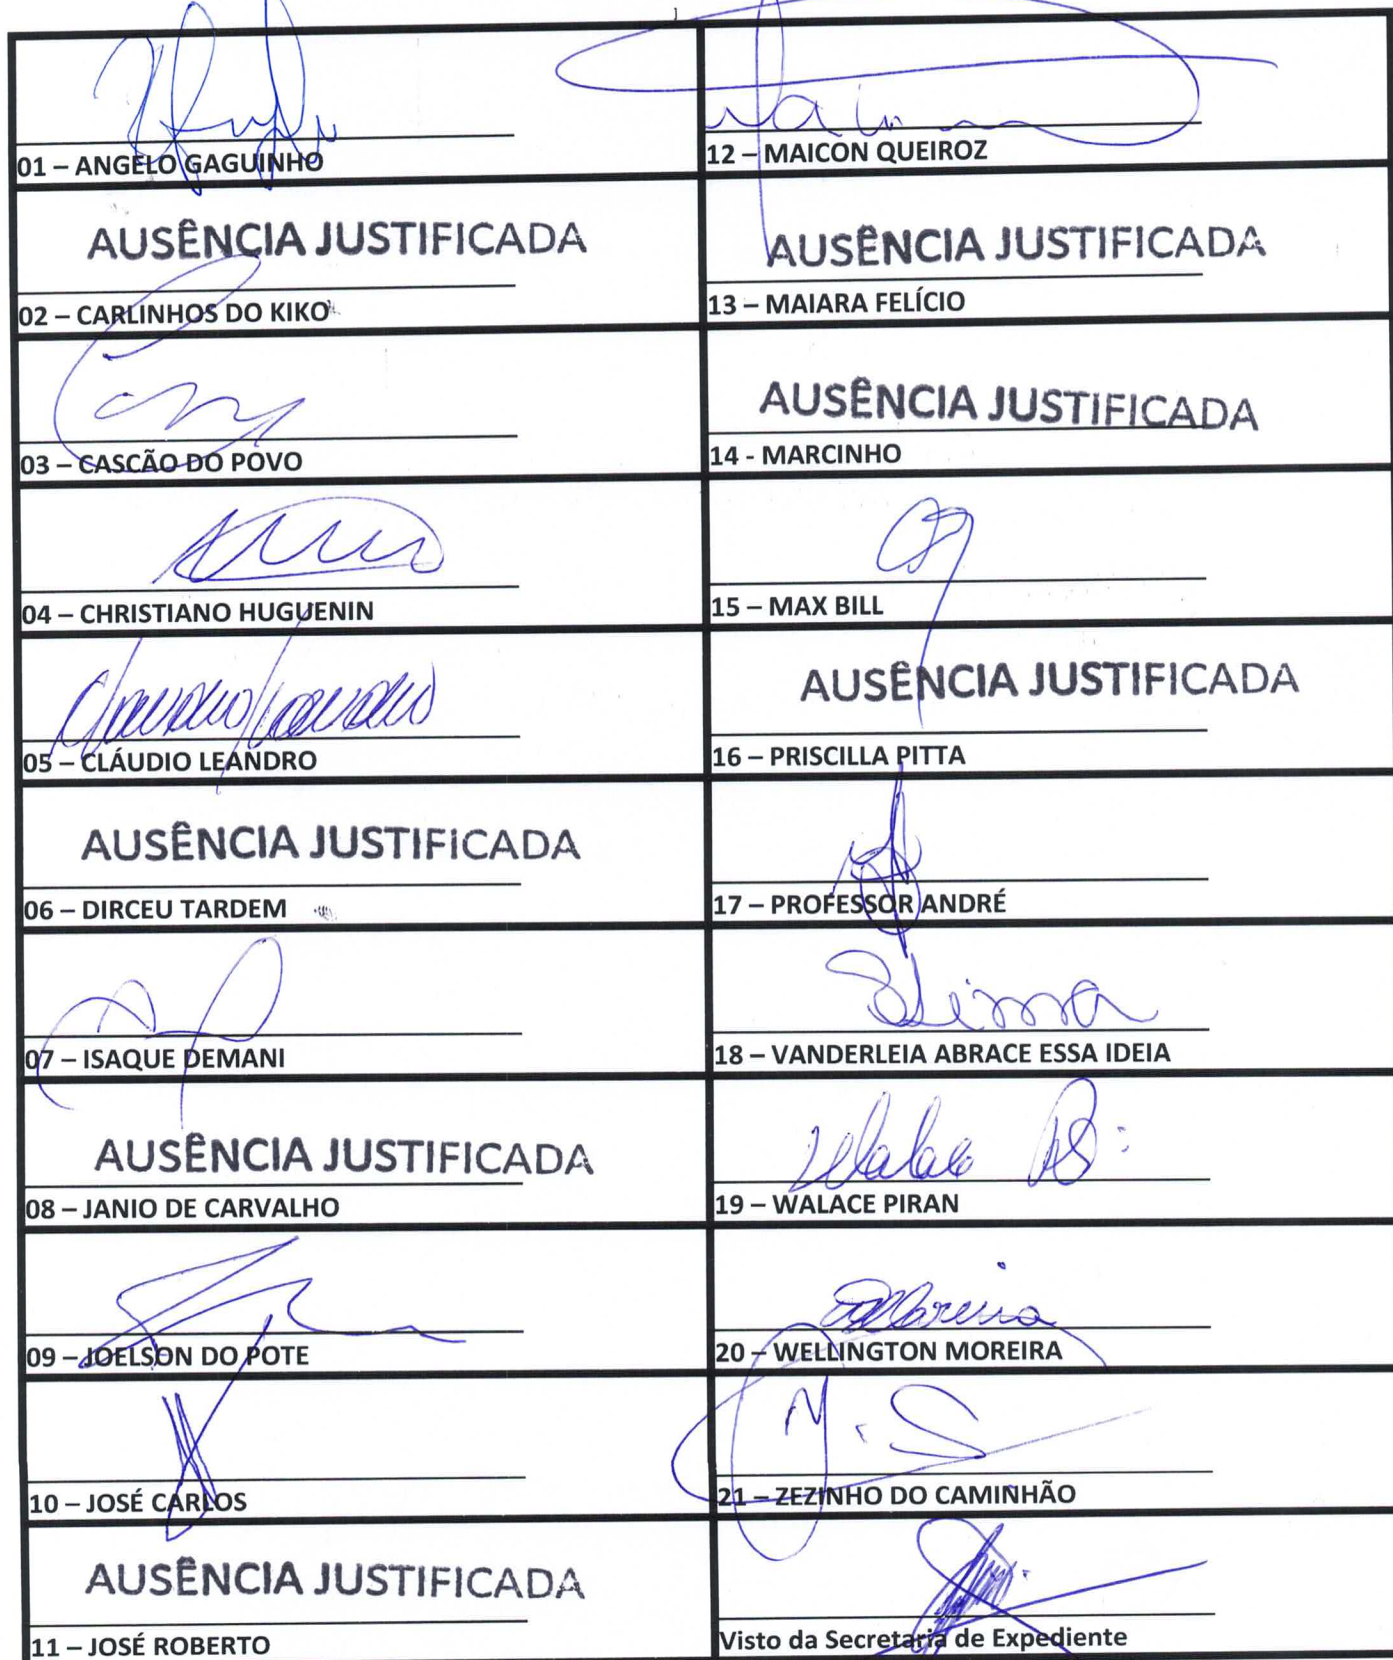 01 – ANGELO GAGUINHO
AUSÊNCIA JUSTIFICADA
02 – CARLINHOS DO KIKO
03 – CASCÃO DO POVO
04 – CHRISTIANO HUGUENIN
05 – CLÁUDIO LEANDRO
AUSÊNCIA JUSTIFICADA
06 – DIRCEU TARDEM
07 – ISAQUE DEMANI
AUSÊNCIA JUSTIFICADA
08 – JANIO DE CARVALHO
09 – JOELSON DO POTE
10 – JOSÉ CARLOS
AUSÊNCIA JUSTIFICADA
11 – JOSÉ ROBERTO
12 – MAICON QUEIROZ
AUSÊNCIA JUSTIFICADA
13 – MAIARA FELÍCIO
AUSÊNCIA JUSTIFICADA
14 - MARCINHO
15 – MAX BILL
AUSÊNCIA JUSTIFICADA
16 – PRISCILLA PITTA
17 – PROFESSOR ANDRÉ
18 – VANDERLEIA ABRACE ESSA IDEIA
Walace
19 – WALACE PIRAN
Moreira
20 – WELLINGTON MOREIRA
21 – ZEZINHO DO CAMINHÃO
Visto da Secretaria de Expediente